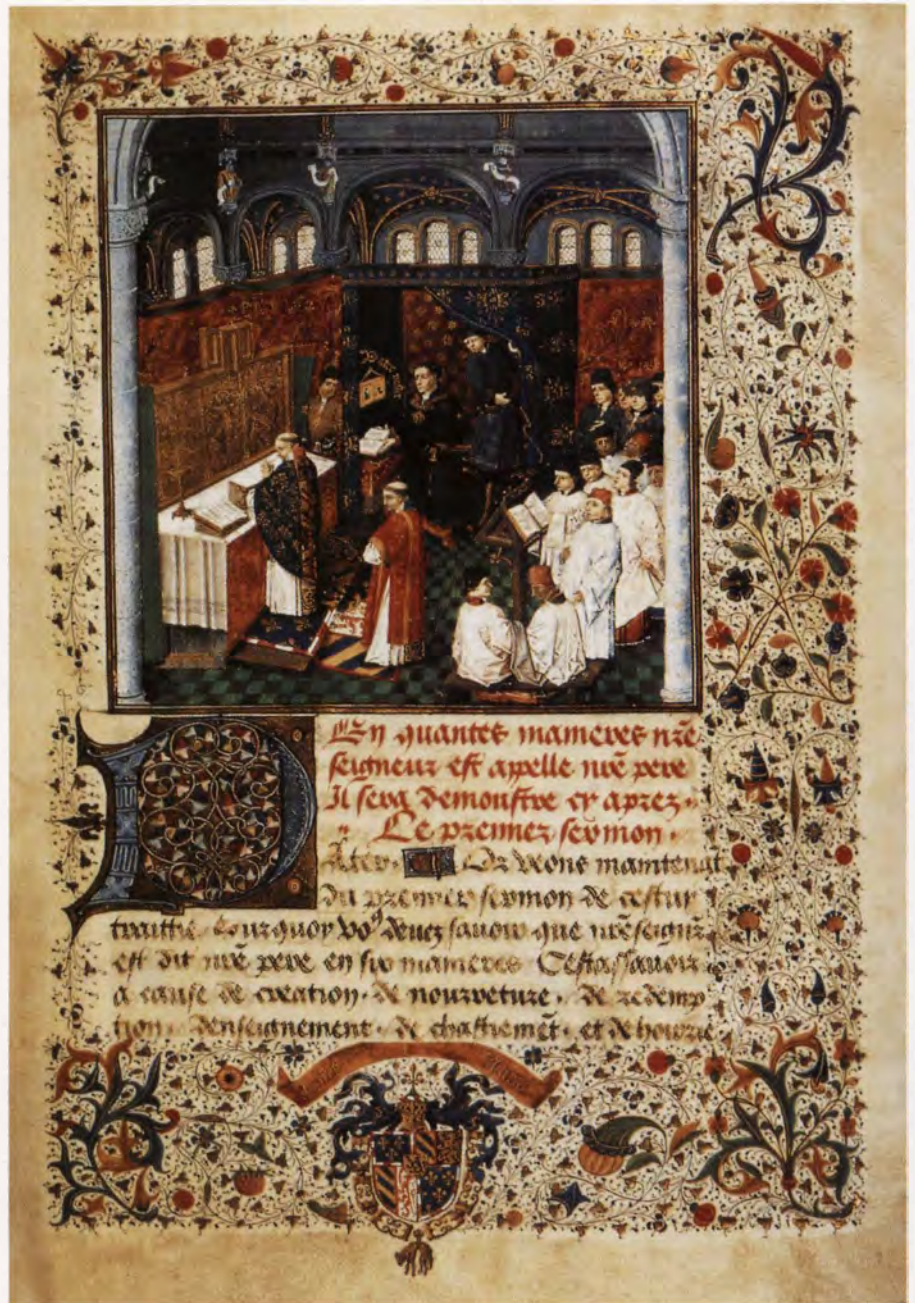 En quantes manieres nr̄e
seigneur est apelle nr̄e pere
Il sera demonstre cy aprez.
Le premier sermon.
Ater. Or dirons maintenāt
du premier sermon de cestuy
traittie. Pourquoy voꝰ deuez sauoir que nr̄e seignr̄
est dit nr̄e pere en six manieres Cestassauoir
a cause de creation. de nourreture. de redemp
tion. denseignement. de chastiemēt. et de